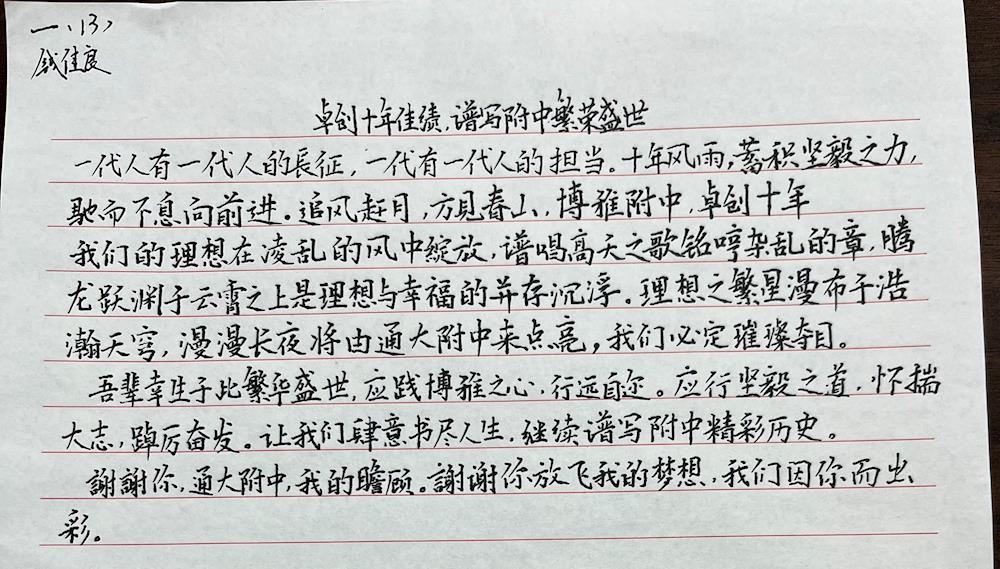 一、13、
钱佳良
卓创十年佳绩，谱写附中繁荣盛世
一代人有一代人的長征，一代有一代人的担当。十年风雨，蓄积坚毅之力，
驰而不息向前进。追风赶月，方見春山，博雅附中，卓创十年
我们的理想在凌乱的风中绽放，谱唱高天之歌铭哼杂乱的章，腾
龙跃渊于云霄之上是理想与幸福的并存沉浮。理想之繁星漫布于浩
瀚天穹，漫漫长夜将由通大附中来点亮，我们必定璀璨夺目。
吾辈幸生于此繁华盛世，应践博雅之心，行远自迩。应行坚毅之道，怀揣
大志，踔厉奋发。让我们肆意书尽人生，继续谱写附中精彩历史。
謝謝你，通大附中，我的瞻顾。謝谢你放飞我的梦想，我们因你而出
彩。